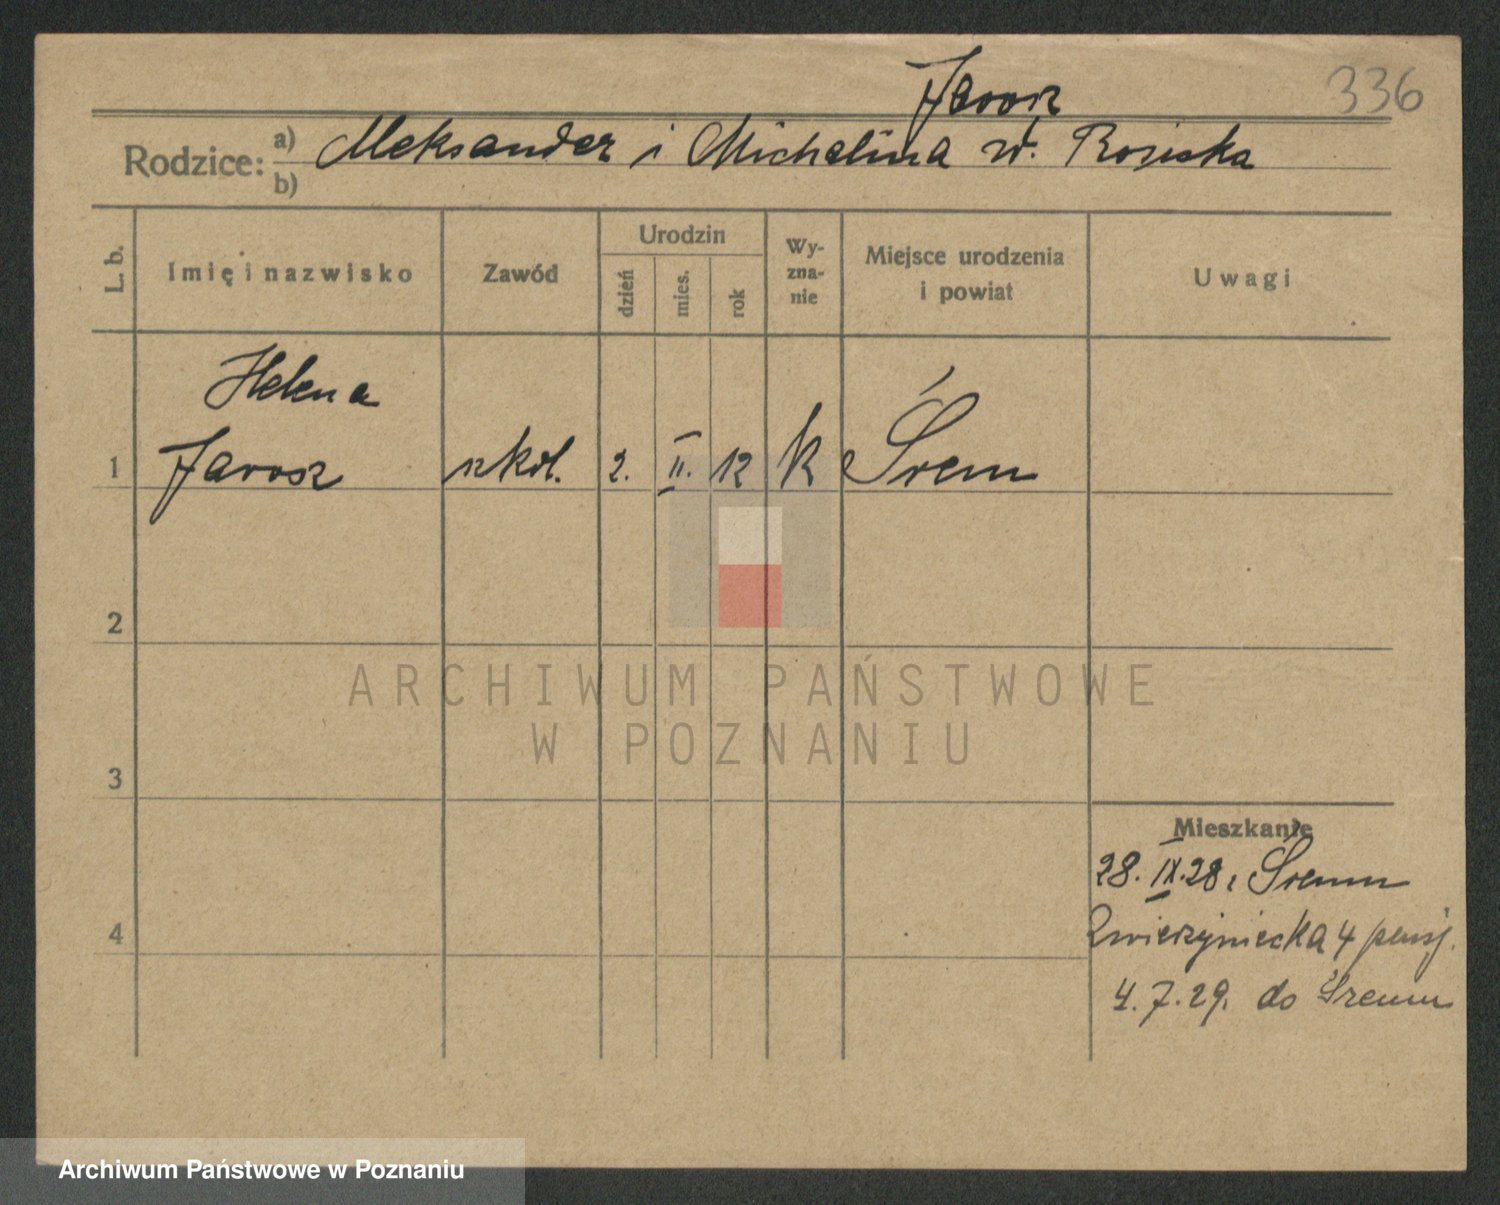 Jarosz 336
Rodzice: a) Aleksander i Michalina
b)
L. b. Imię i nazwisko Zawód Urodzin dzień mies. rok Wyzna-nie Miejsce urodzenia i powiat Uwagi
Helena
1 Jarosz szkol. 2. II. 12 k Śrem
2
ARCHIWUM PAŃSTWOWE
W POZNANIU
3
Mieszkanie
28. IX. 28 z Śremu
4 Zwierzyniecka 4 pensj.
4. 7. 29. do Śremu
Archiwum Państwowe w Poznaniu